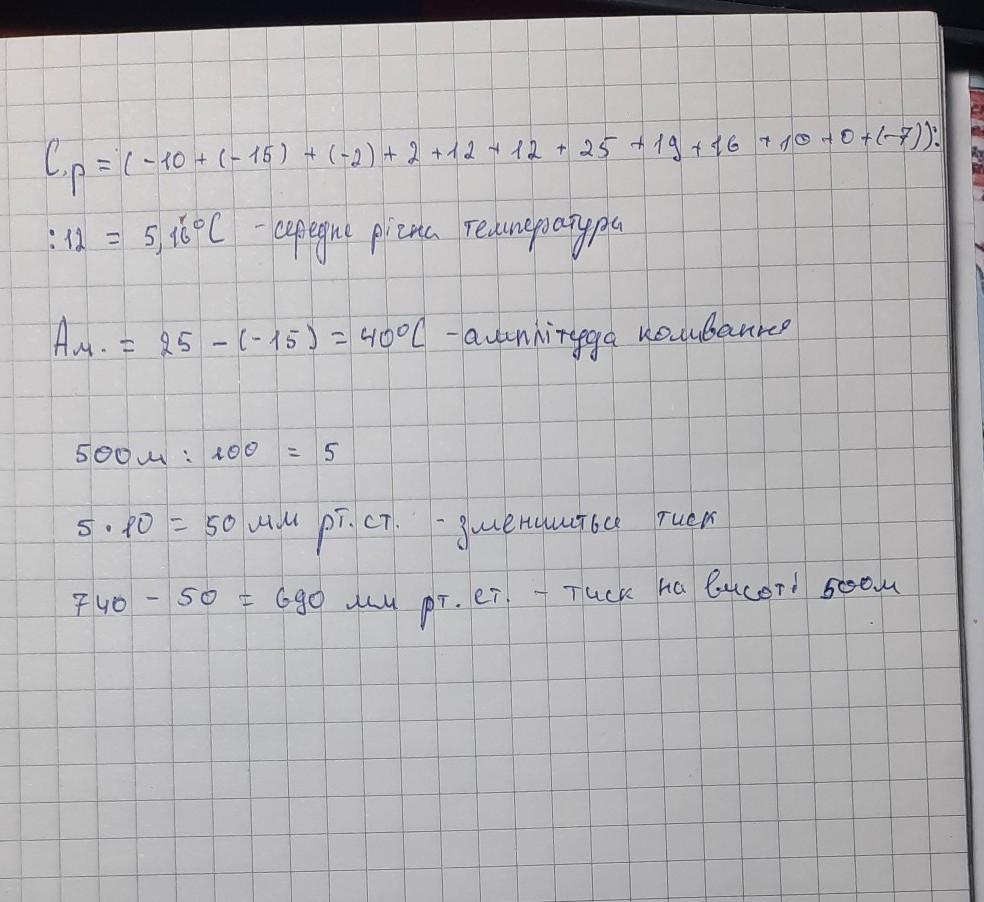 С.р = (-10 + (-15) + (-2) + 2 + 12 + 12 + 25 + 19 + 16 + 10 + 0 + (-7)):
:12 = 5,16°С - середнє річна температура
Ам. = 25 - (-15) = 40°С - амплітуда коливання
500м : 100 = 5
5 · 10 = 50 мм рт. ст. - зменшиться тиск
740 - 50 = 690 мм рт. ст. - тиск на висоті 500м